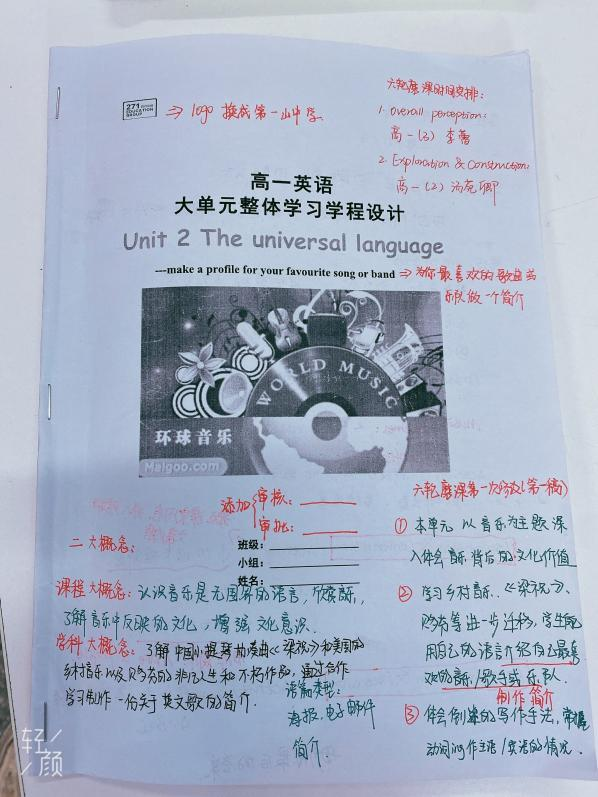 271 EDUCATION GROUP
⇒ logo 换成第一山中学
六轮磨课时间安排：
1. overall perception:
高一（3）李蕾
2. Exploration & Construction:
高一（2）汤苑卿
高一英语
大单元整体学习学程设计
Unit 2 The universal language
---make a profile for your favourite song or band
⇒为你最喜欢的歌曲或
乐队做一个简介
WORLD MUSIC
环球音乐
Maigoo.com
添加{审核：
审批：
班级：
小组：
姓名：
二大概念：
课程大概念：认识音乐是无国界的语言，欣赏音乐，
了解音乐中反映的文化，增强文化意识.
学科大概念：了解中国小提琴协奏曲《梁祝》和美国的
乡村音乐以及贝多芬的非凡人生和不朽作品，通过合作
学习制作一份关于英文歌的简介.
语篇类型：
海报，电子邮件
简介.
六轮磨课第一次修改（第一稿）
① 本单元以音乐为主题深
入体会音乐背后的文化价值
② 学习乡村音乐.《梁祝》、
贝多芬等进一步迁移，学生能
用自己的语言介绍自己最喜
欢的音乐/歌手或乐队.
制作简介
③ 体会倒叙的写作手法，掌握
动词ing作主语/宾语的情况.
轻颜